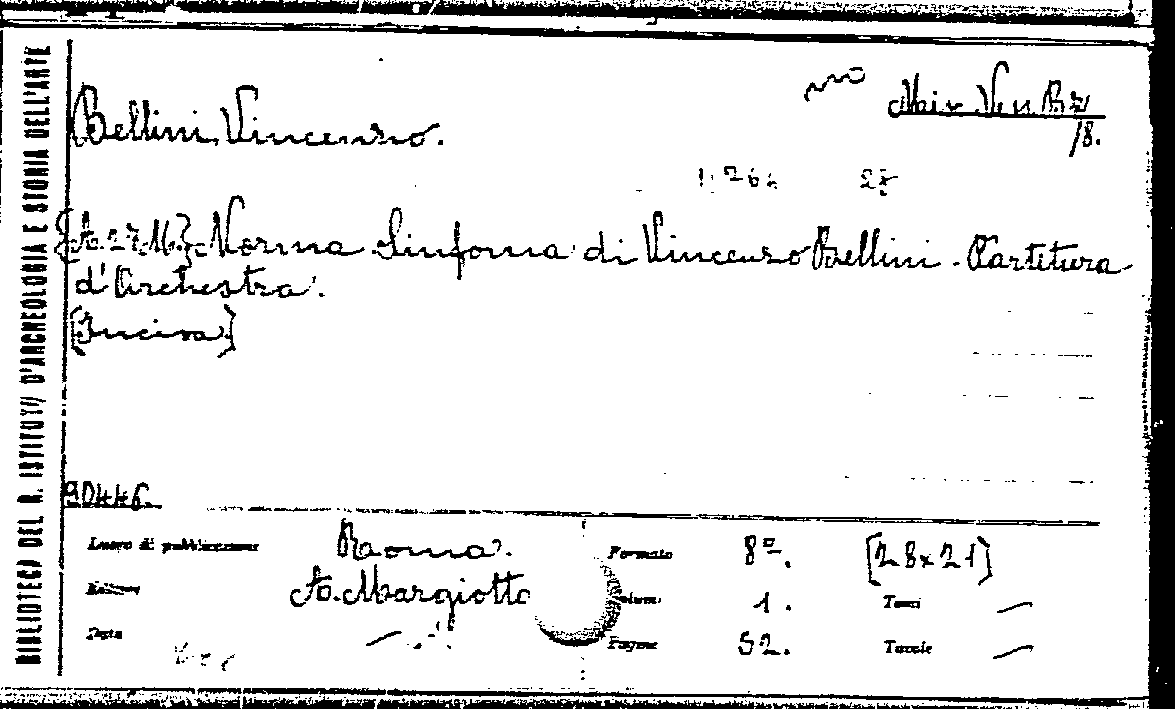 BIBLIOTECA DEL R. ISTITUTO D'ARCHEOLOGIA E STORIA DELL'ARTE
Bellini, Vincenzo.
/8.
[A. 27 M.] Norma Sinfonia di Vincenzo Bellini. Partitura
d'Orchestra.
[Incisa]
90446.
Luogo di pubblicazione Roma. Formato 8º. [28x21]
Editore A. Margiotta Volumi 1. Tomi —
Data — Pagine 52. Tavole —